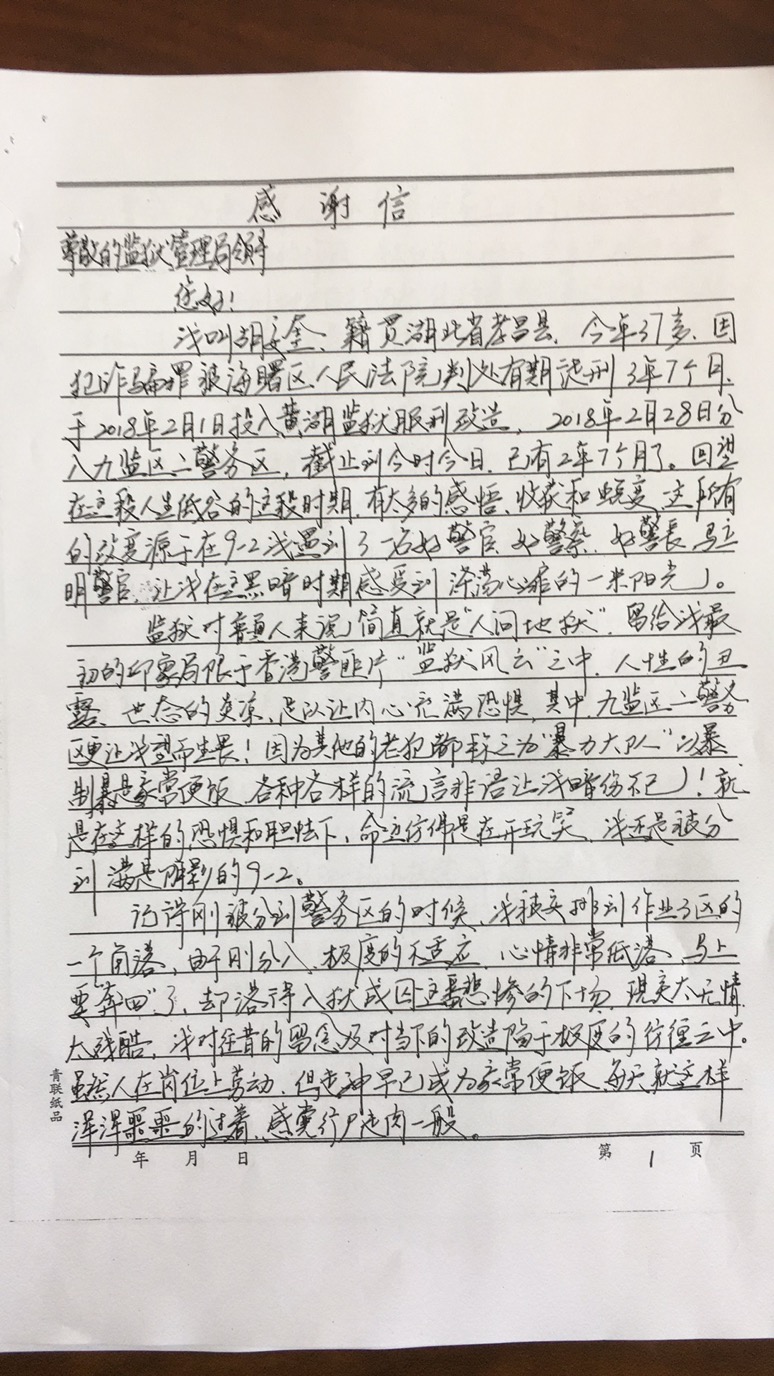 感谢信
尊敬的监狱管理局领导
您好!
浅叫胡 金、籍贯湖北省孝昌县,今年37岁,因
犯诈骗罪被海曙区人民法院判处有期徒刑3年7个月,
于2018年2月1日投入黄湖监狱服刑改造,2018年2月28日分
入九监区二警务区,截止到今时今日,已有2年7个月了。回望
在这段人生低谷的这段时期,有太多的感悟、收获和蜕变,这所有
的改变源于在9-2浅遇到了一名好警官、好警察、好警长马立
明警官,让浅在这黑暗时期感受到涤荡心 的一米阳光。
监狱对普通人来说简直就是“人间地狱”,留给浅最
初的印象局限于香港警匪片“监狱风云”之中,人性的丑
露、世态的炎凉,足以让内心充满恐惧,其中,九监区二警务
区更让浅望而生畏!因为其他的老犯都称之为“暴力大队”以暴
制暴是家常便饭,各种各样的流言非语让浅暗伤不已!就
是在这样的恐惧和胆怯下,命运仿佛是在开玩笑,浅还是被分
到满是阴影的9-2。
记得刚被分到警务区的时候,浅被安排到作业了区的
一个角落,由于刚分入,极度的不适应,心情非常低落、马上
要“奔四”了,却落得入狱成囚这番悲惨的下场,现实太无情
太残酷,浅对往昔的留念及对当下的改造陷于极度的彷徨之中。
虽然人在岗位上劳动,但走神早已成为家常便饭,每天就这样
浑浑噩噩的过着、感觉行尸走肉一般。
青联纸品
年 月 日
第 1 页